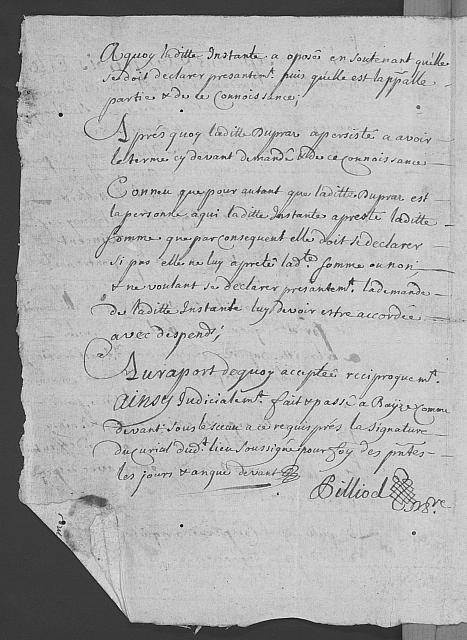 A quoy laditte Instante a oposé en soutenant qu'elle
se doit declarer presantemt. puis qu'elle est la ppalle
partie & de ce Connoissance;
Aprés quoy laditte Dupraz a persisté a avoir
le terme cy devant demandé & de ce connoissance
Conneu que pour autant que laditte Dupraz est
la personne a qui laditte Instante a presté laditte
somme que par consequent elle doit se declarer
si pas elle ne luy a preté ladte. somme ou non
& ne voulant se declarer presantemt. la demande
de laditte Instante luy devoir estre accordée
avec despends;
Au raport de quoy acceptée reciproquemt.
ainsy Judicialemt. fait & passé a Rayze comme
devant sous le sceau a ce requis prés la signature
du curial dudt. lieu soussigné pour foy des pntes
les jours & an que devant
Pilliod